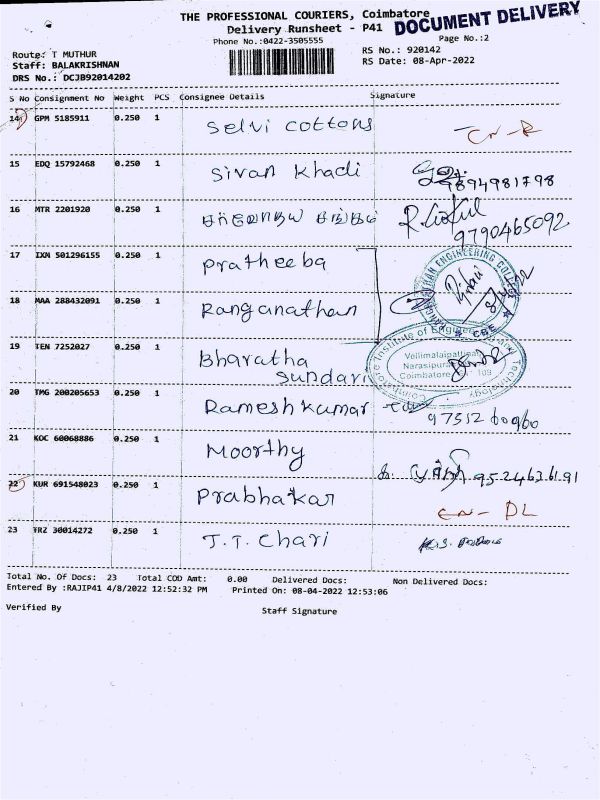 THE PROFESSIONAL COURIERS, Coimbatore
DOCUMENT DELIVERY
Delivery Runsheet - P41
Phone No.:0422-3505555
Page No.:2
Route: T MUTHUR
RS No.: 920142
Staff: BALAKRISHNAN
RS Date: 08-Apr-2022
DRS No.: DCJB92014202
S No Consignment No Weight PCS Consignee Details Signature
14 GPM 5185911 0.250 1 Selvi cottons CN-R
15 EDQ 15792468 0.250 1 Sivan Khadi
9894981798
16 MTR 2201920 0.250 1 சர்வோதய சங்கம் R.Gokul
9790465092
17 IXM 501296155 0.250 1 Pratheeba
RANGANATHAN ENGINEERING COLLEGE
CBE
18 MAA 288432091 0.250 1 Ranganathan
19 TEN 7252027 0.250 1 Bharatha
Sundari
Coimbatore Institute of Engineering and Technology
Vellimalaipattinam
Narasipuram
Coimbatore 109
20 TMG 200205653 0.250 1 Rameshkumar
97512 60960
21 KOC 60068886 0.250 1 Moorthy
9524636191
22 KUR 691548023 0.250 1 Prabhakar CN-DL
23 TRZ 30014272 0.250 1 T.T. Chari
Total No. Of Docs: 23 Total COD Amt: 0.00 Delivered Docs: Non Delivered Docs:
Entered By :RAJIP41 4/8/2022 12:52:32 PM Printed On: 08-04-2022 12:53:06
Verified By Staff Signature